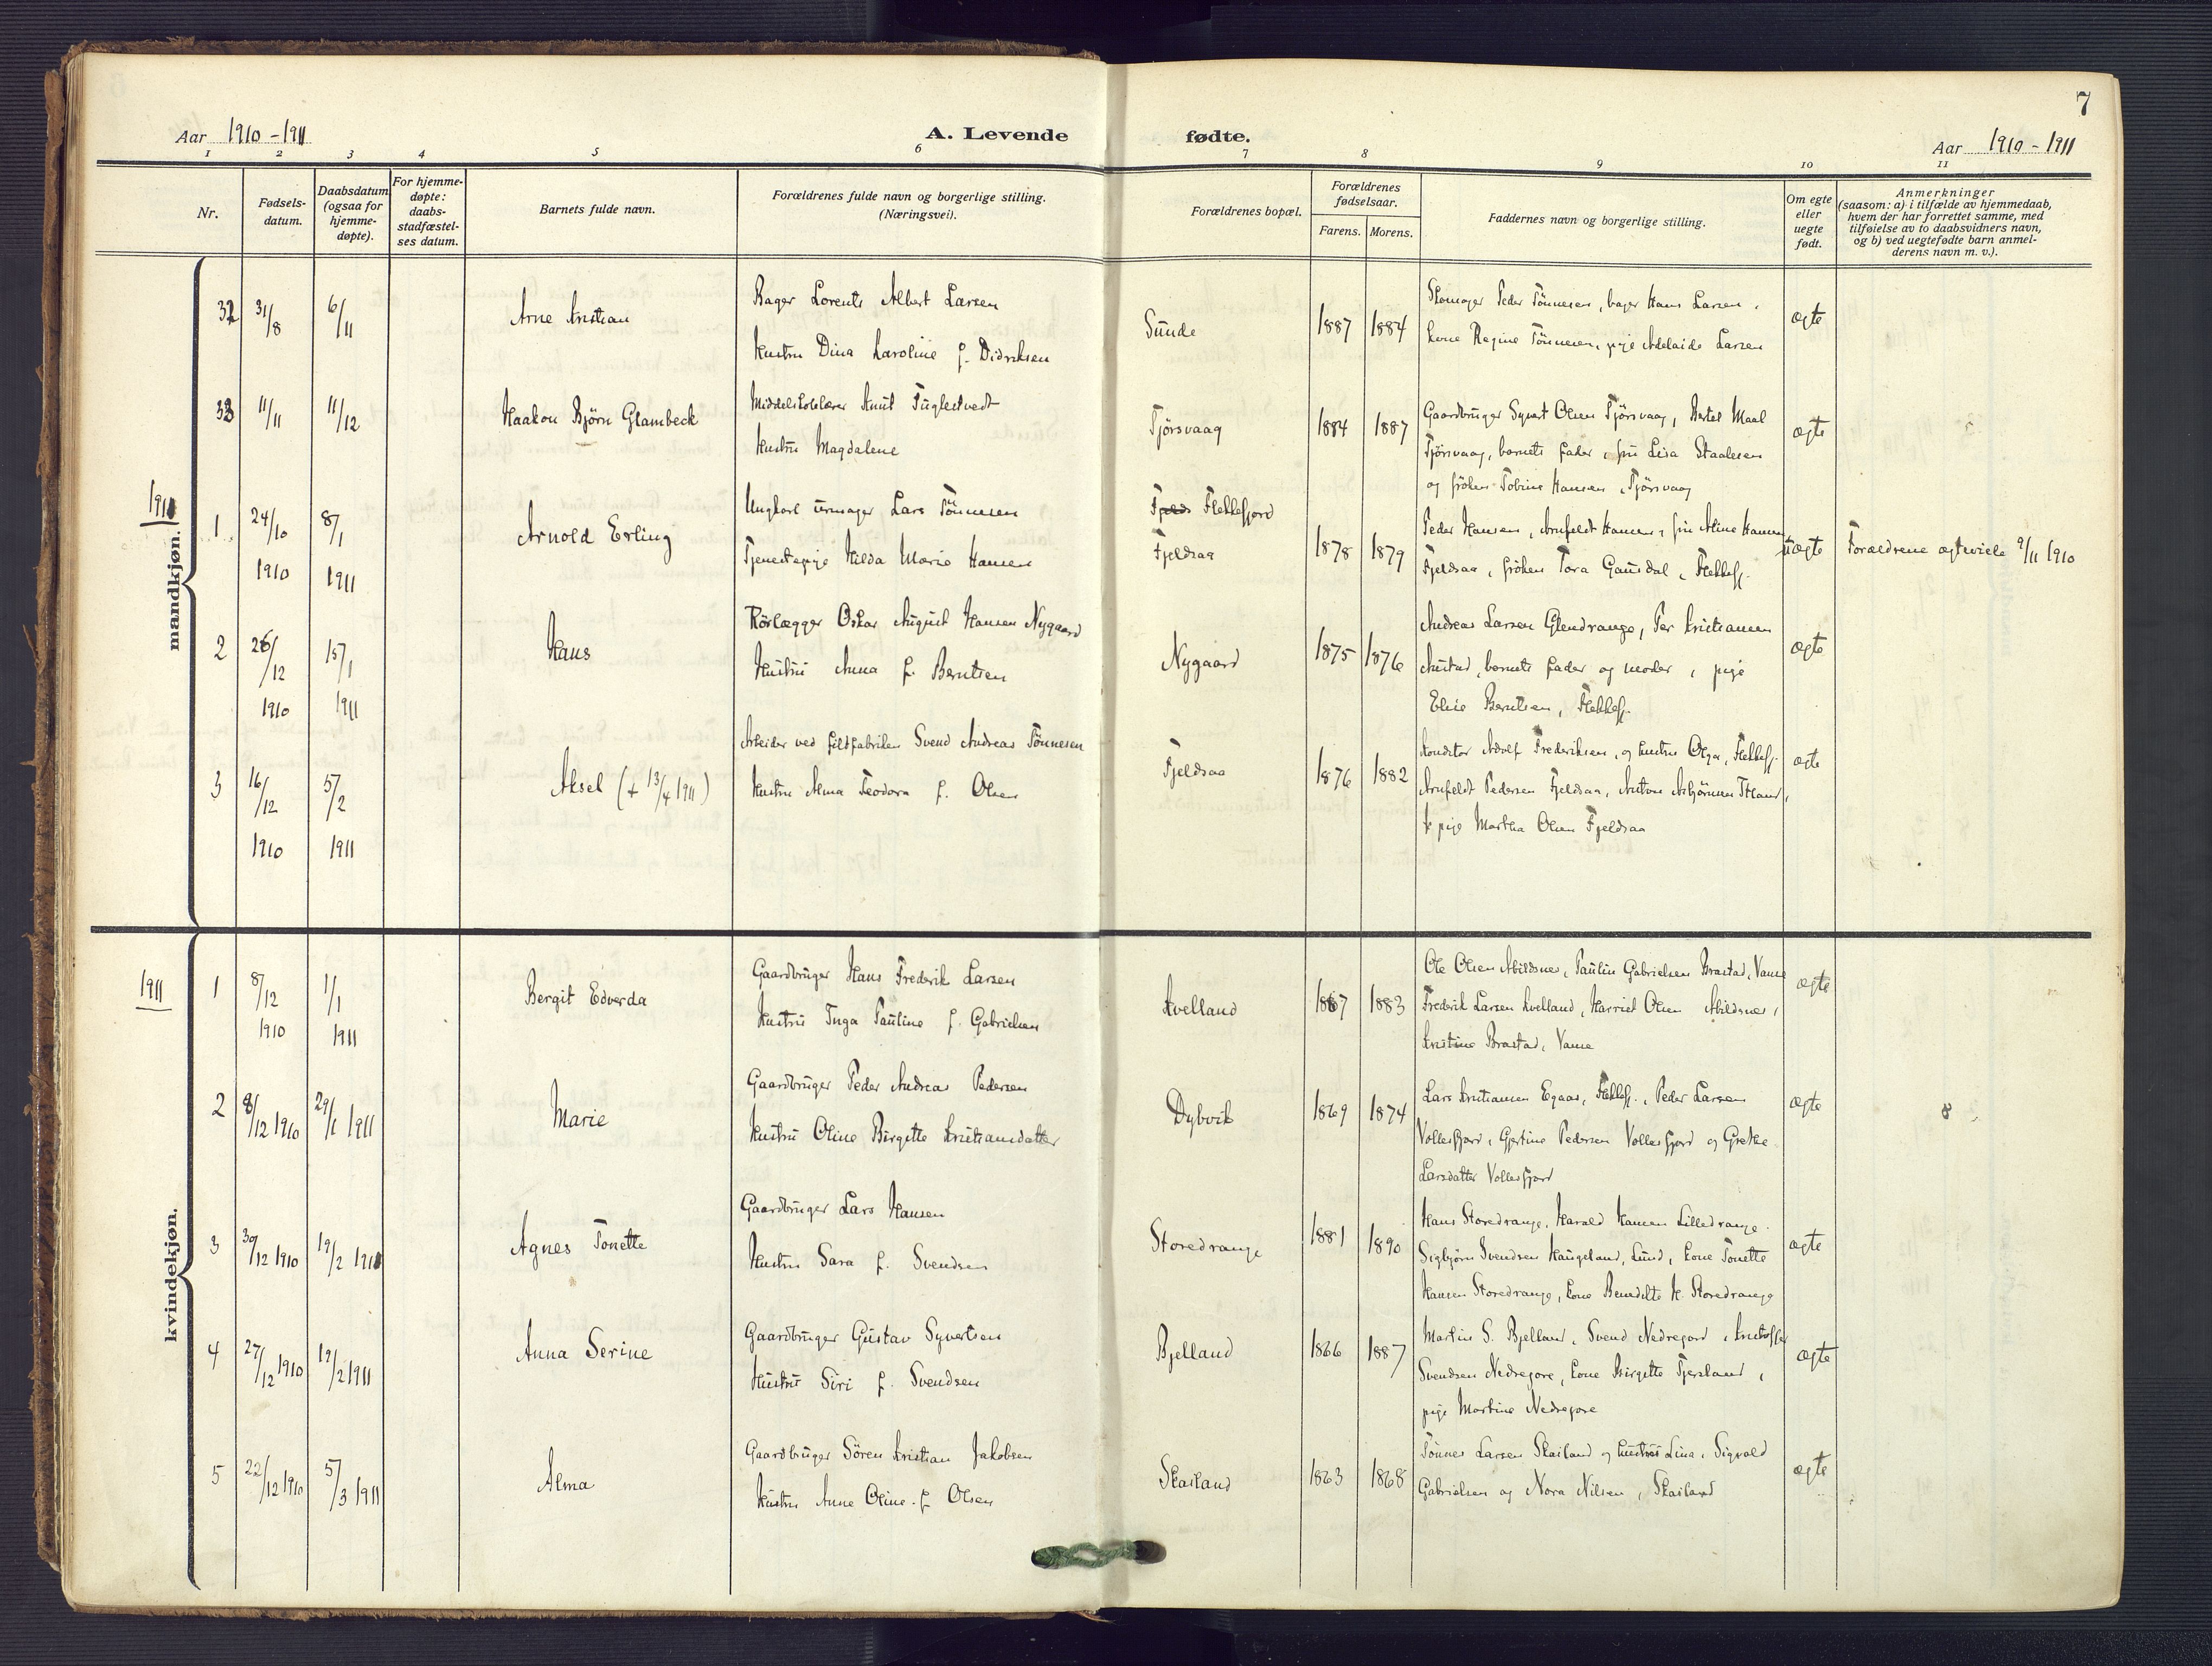 7
Aar 1910-1911
A. Levende fødte.
Aar 1910-1911
1 2 3 4 5 6 7 8 9 10 11
Nr.
Fødsels-
datum.
Daabsdatum
(ogsaa for
hjemme-
døpte).
For hjemme-
døpte:
daabs-
stadfæstel-
ses datum.
Barnets fulde navn.
Forældrenes fulde navn og borgerlige stilling.
(Næringsvei).
Forældrenes bopæl.
Forældrenes
fødselsaar.
Farens. Morens.
Faddernes navn og borgerlige stilling.
Om egte
eller
uegte
født.
Anmerkninger
(saasom: a) i tilfælde av hjemmedaab,
hvem der har forrettet samme, med
tilføielse av to daabsvidners navn,
og b) ved uegtefødte barn anmel-
derens navn m. v.).
mandkjøn.
32 31/8 6/11
Arne Kristian
Bager Lorents Albert Larsen
Hustru Dina Karoline f. Didriksen
Sunde
1887 1884
Skomager Peder Tönnesen, bager Hans Larsen,
kone Regine Tönnesen, pige Adelaide Larsen
ægte
33 11/11 11/12
Haakon Björn Glambeck
Middelskolelærer Knut Fuglestvedt
Hustru Magdalene
Tjörsvaag
1884 1887
Gaardbruger Syvert Olsen Tjörsvaag, Bertel Maal
Tjörsvaag, barnets fader, fru Lisa Staalesen
og fröken Tobine Hansen, Tjörsvaag
ægte
1911
1 24/10 1910 8/1 1911
Arnold Erling
Ungkarl urmager Lars Tönnesen
Tjenestepige Hilda Marie Hansen
Flekkefjord
Fjeldsaa
1878 1879
Peder Hansen, Arnfeldt Hansen, fru Aline Hansen
Fjeldsaa, fröken Tora Gausdal, Flekkefj.
uægte
Forældrene ægteviede 9/11 1910
2 26/12 1910 15/1 1911
Hans
Rörlægger Oskar August Hansen Nygaard
Hustru Anna f. Berntsen
Nygaard
1875 1876
Andreas Larsen Glendrange, Per Kristiansen
Austad, barnets fader og moder, pige
Elise Berntsen, Flekkefj.
ægte
3 16/12 1910 5/2 1911
Aksel (+ 13/4 1911)
Arbeider ved filtfabriken Svend Andreas Tönnesen
Hustru Alma Teodora f. Olsen
Fjeldsaa
1876 1882
Konditor Adolf Frederiksen, og hustru Olga, Flekkefj.
Arnfeldt Pedersen Fjeldsaa, Anton Asbjörnsen
pige Martha Olsen Fjeldsaa
ægte
kvindekjøn.
1911
1 8/12 1910 1/1 1911
Bergit Edverda
Gaardbruger Hans Frederik Larsen
Hustru Inga Pauline f. Gabrielsen
Kvelland
1867 1883
Ole Olsen Abildsnes, Paulin Gabrielsen Brastad, Vanse
Fredrik Larsen Kvelland, Harriet Olsen Abildsnes,
Kristine Brastad, Vanse
ægte
2 8/12 1910 29/1 1911
Marie
Gaardbruger Peder Andreas Pedersen
Hustru Oline Birgitte Kristiansdatter
Dybvik
1869 1874
Lars Kristiansen Egaas, Flekkefj., Peder Larsen
Vollesfjord, Gjertine Pedersen Vollesfjord og Grethe
Larsdatter Vollesfjord
ægte
8
3 30/12 1910 19/2 1911
Agnes Tonette
Gaardbruger Lars Hansen
Hustru Sara f. Svendsen
Storedrange
1881 1890
Hans Storedrange, Harald Hansen Lilledrange.
Sigbjörn Svendsen Haugeland, Lund, kone Tonette
Hansen Storedrange, kone Benedikte H. Storedrange
ægte
4 27/12 1910 19/2 1911
Anna Serine
Gaardbruger Gustav Syvertsen
Hustru Siri f. Svendsen
Bjelland
1866 1887
Martin S. Bjelland, Svend Nedregord, Kristoffer
Svendsen Nedregore, kone Birgitte Fjersland,
pige Martine Nedregore
ægte
5 22/12 1910 5/3 1911
Alma
Gaardbruger Sören Kristian Jakobsen
Hustru Anne Oline f. Olsen
Skailand
1863 1868
Tönnes Larsen Skailand og hustru Lina, Sigvald
Gabrielsen og Nora Nilsen, Skailand
ægte